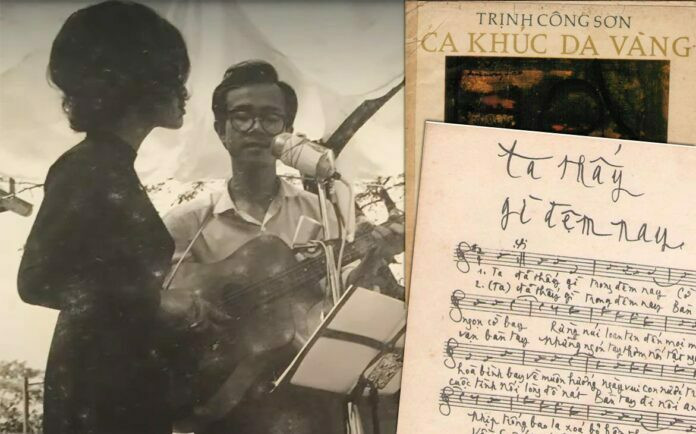 TRỊNH CÔNG SƠN
CA KHÚC DA VÀNG
ta thấy
gì đêm nay
1. Ta đã thấy gì trong đêm nay Cờ
2. (ta) đã thấy gì trong đêm nay Bàn
ngọn cờ bay Rừng núi loan tin đến mọi
vạn bàn tay những ngón tay thơm nối tật
hoà bình bay về muôn hướng ngày vui con nước
cuộc tình nối lòng đổ nát Bàn tay đi nối
Nhịp trống bao la xoá bỏ